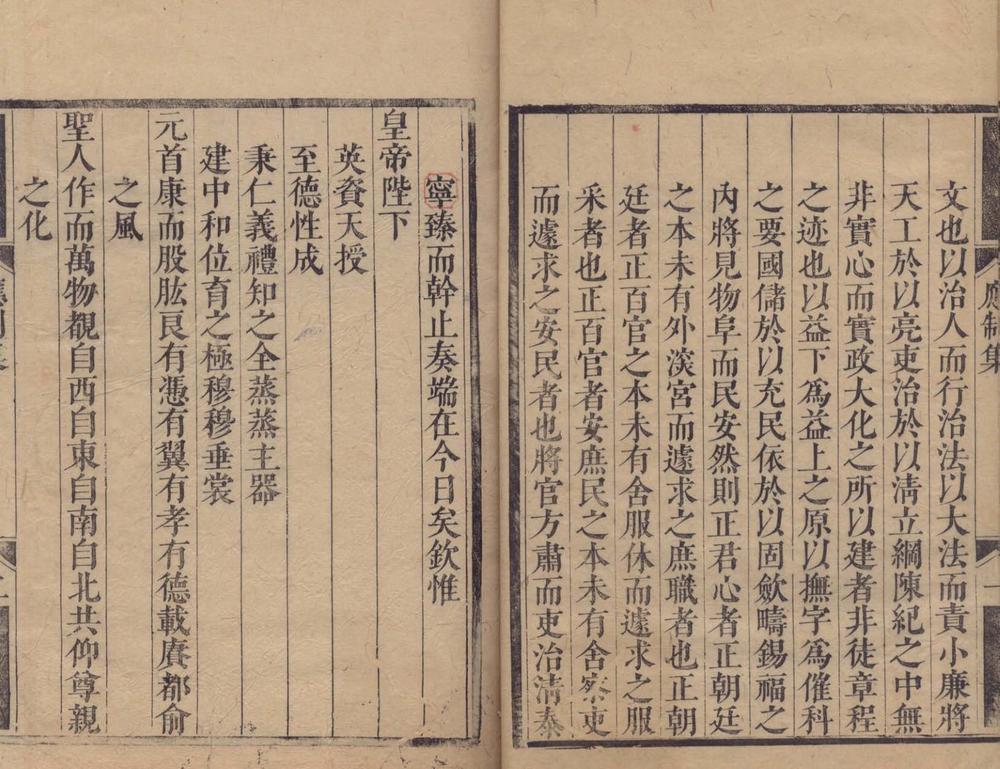 應制集
文也以治人而行治法以大法而責小廉將
天工於以亮吏治於以清立綱陳紀之中無
非實心而實政大化之所以建者非徒章程
之迹也以益下爲益上之原以撫字爲催科
之要國儲於以充民依於以固斂疇錫福之
內將見物阜而民安然則正君心者正朝廷
之本未有外渋宮而遽求之庶職者也正朝
廷者正百官之本未有舍服休而遽求之服
采者也正百官者安庶民之本未有舍察吏
而遽求之安民者也將官方肅而吏治清泰
寧臻而幹止奏端在今日矣欽惟
皇帝陛下
英資天授
至德性成
秉仁義禮知之全蒸蒸主器
建中和位育之極穆穆垂裳
元首康而股肱良有憑有翼有孝有德載賡都俞
之風
聖人作而萬物覩自西自東自南自北共仰尊親
之化